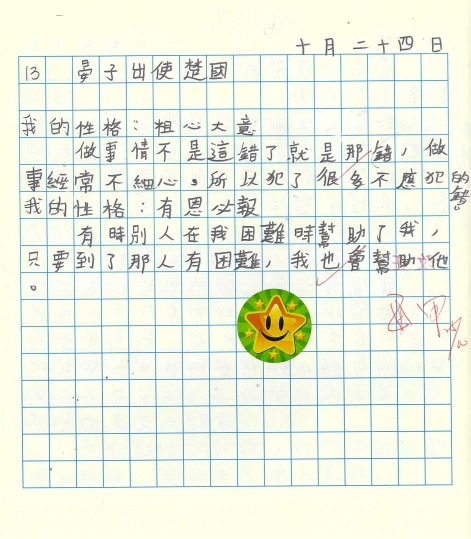 十月二十四日
13 晏子出使楚國
我的性格：粗心大意
做事情不是這錯了就是那錯，做
事經常不細心。所以犯了很多不應犯的錯。
我的性格：有恩必報
有時別人在我困難時幫助了我，
只要到了那人有困難，我也會幫助他
。